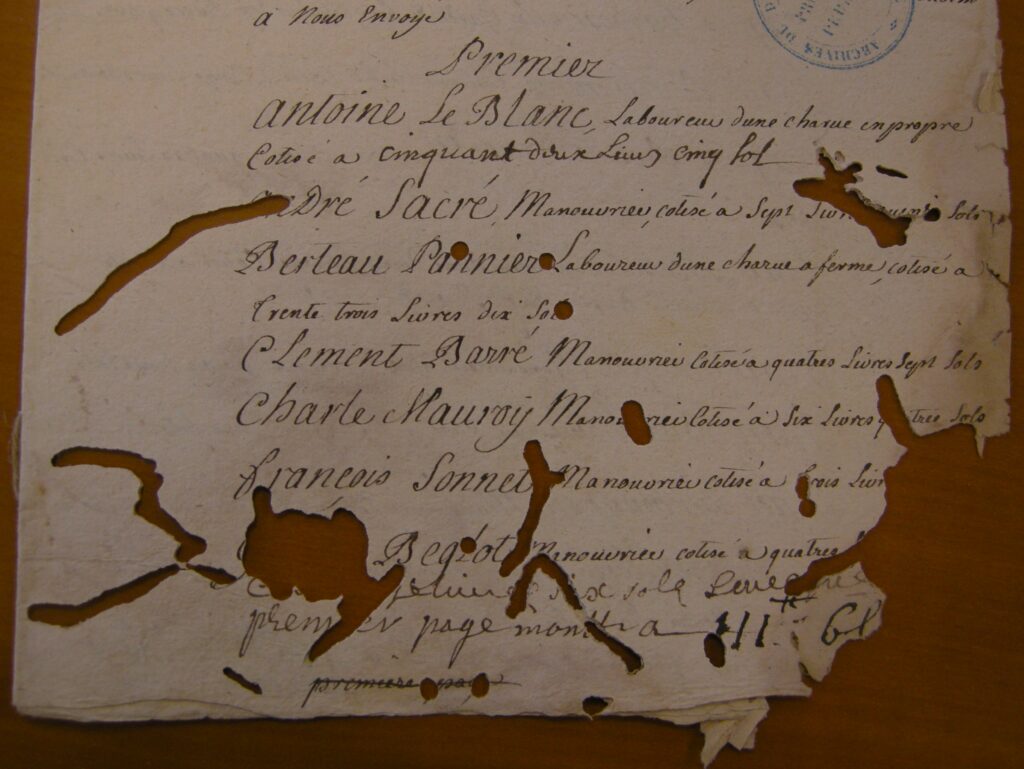 a Nous Envoyé
ARCHIVES DE
Premier
Antoine Le Blanc, Laboureur dune charue en propre
Cotisé a cinquant deux Livres cinq sol
André Sacré, Manouvrier, cotisé a Sept Livres sols
Berteau Pannier Laboureur dune charue a ferme, cotisé a
Trente trois Livres dix Sol
Clement Barré Manouvrier Cotisé a quatres Livres Sept Sols
Charle Mauroy Manouvrier Cotisé a Six Livres quatres Sols
François Sonnet Manouvrier cotisé a trois Livr
Begiot Manouvrier cotisé a quatres
six sols
premier page monte a 411 6l
premiere page